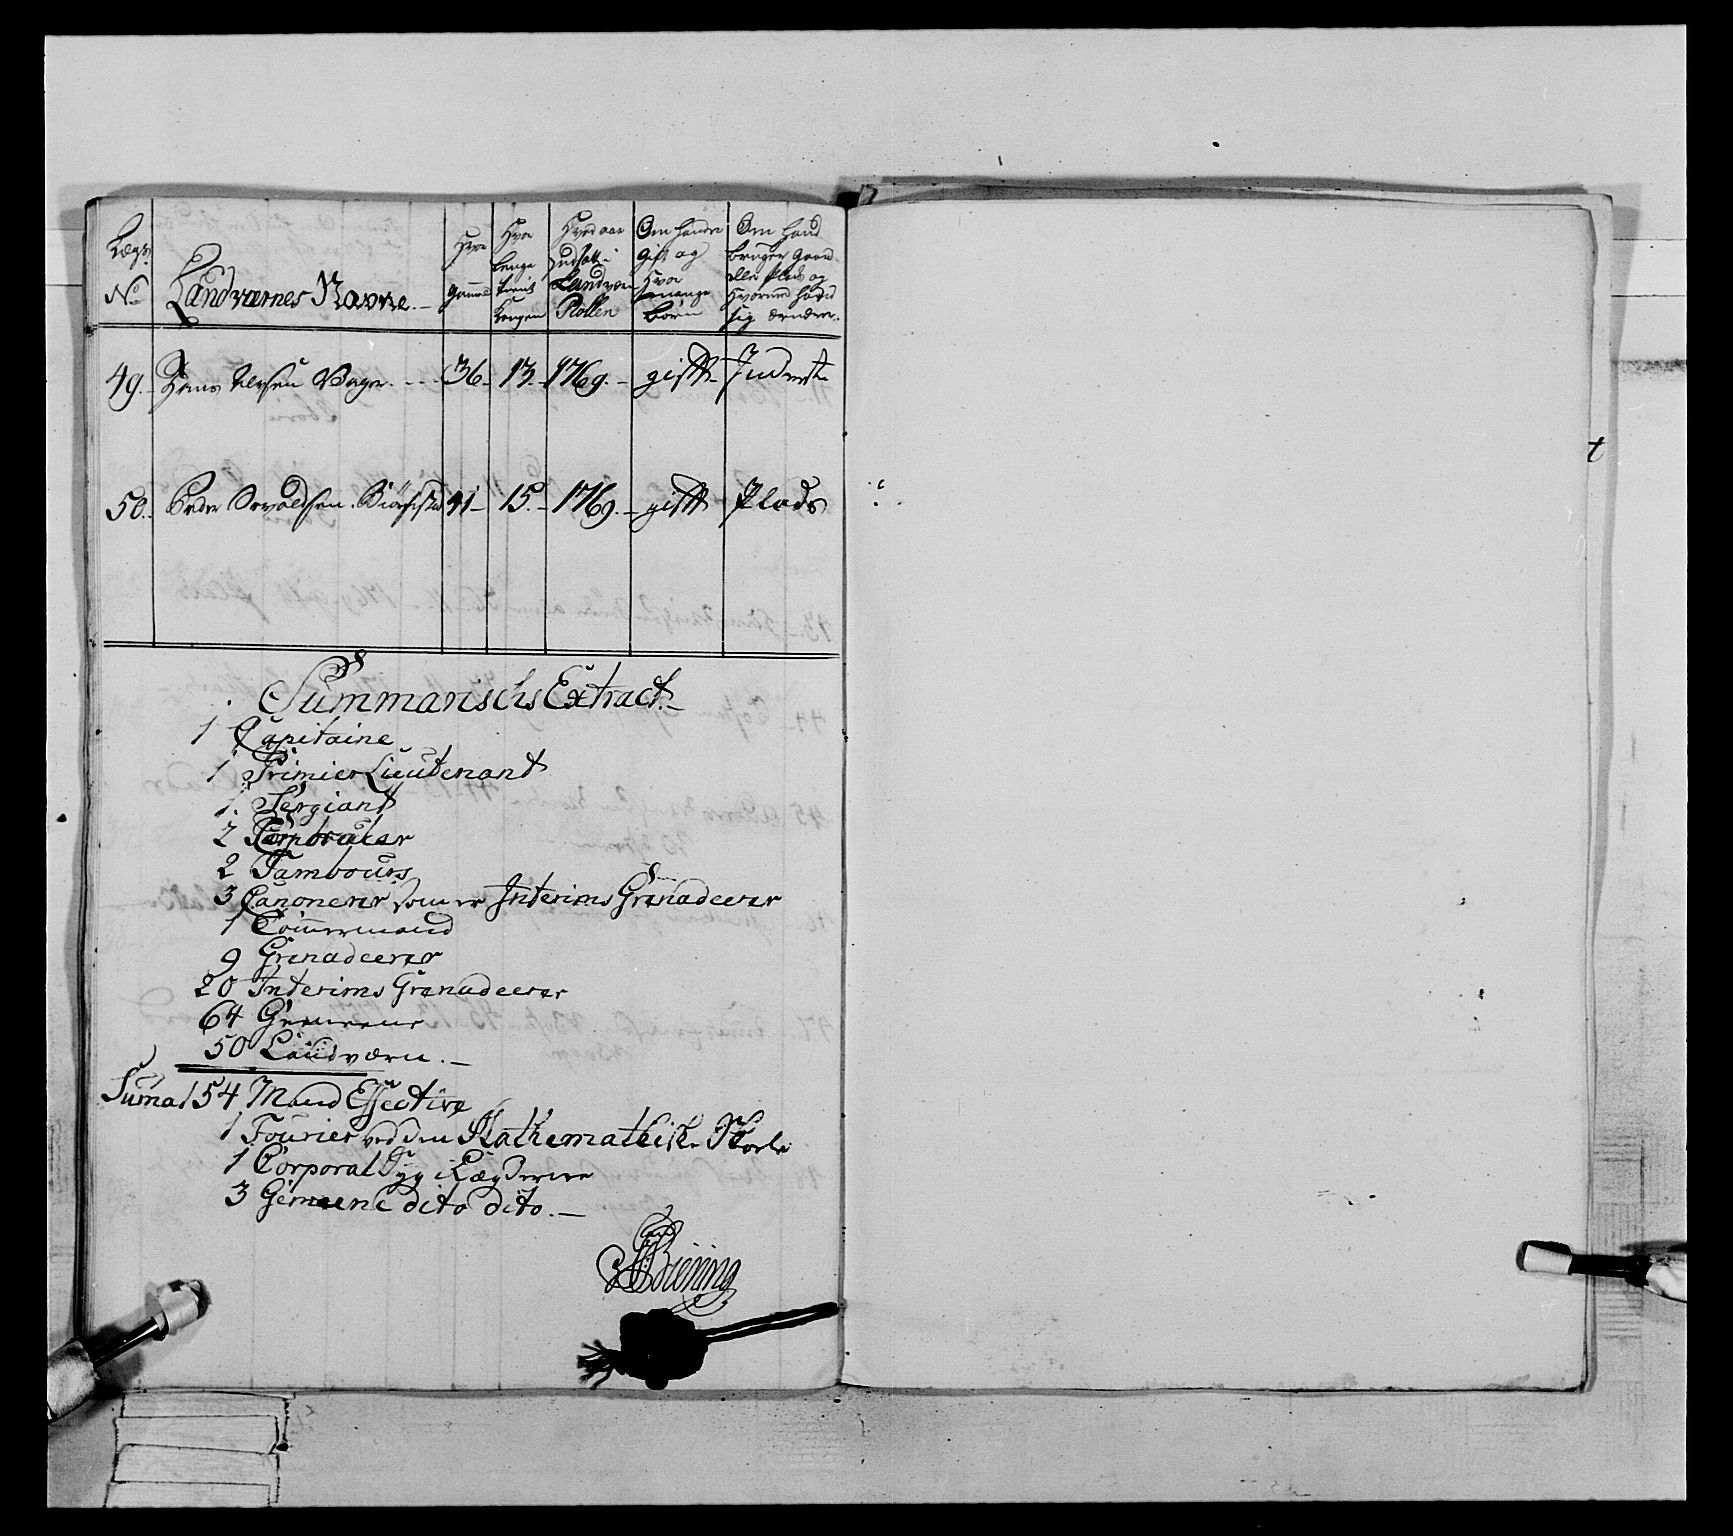 Lægs No
Landværnes Navne.
Hvor gammel
Hvor lenge tient Kongen
Hvad aar udsatt i Landværn Rollen
Om hand er gift og hvor mange børn
Om hand bruger gaard eller Plads og hvormed hand sig ernærer.
49. Hans Bager. 36. 13. 1769. gifft Inderste
50. Peder 41 15. 1769. gifft Plads
Summarisch Extract.
1 Capitaine
1 Primier Lieutenant
1 Sergiant
2 Corporaler
2 Tambours
3 Canonerer som er Interims Grenadeerer
1 Tømmermand
9 Grenadeerer
20 Interims Grenadeerer
64 Gemeene
50 Landværn.
Suma 154 Mand Effective
1 Fourier ved den Mathematiske Skole
1 Corporal Syg i Lægderne
3 Gemeene dito dito.